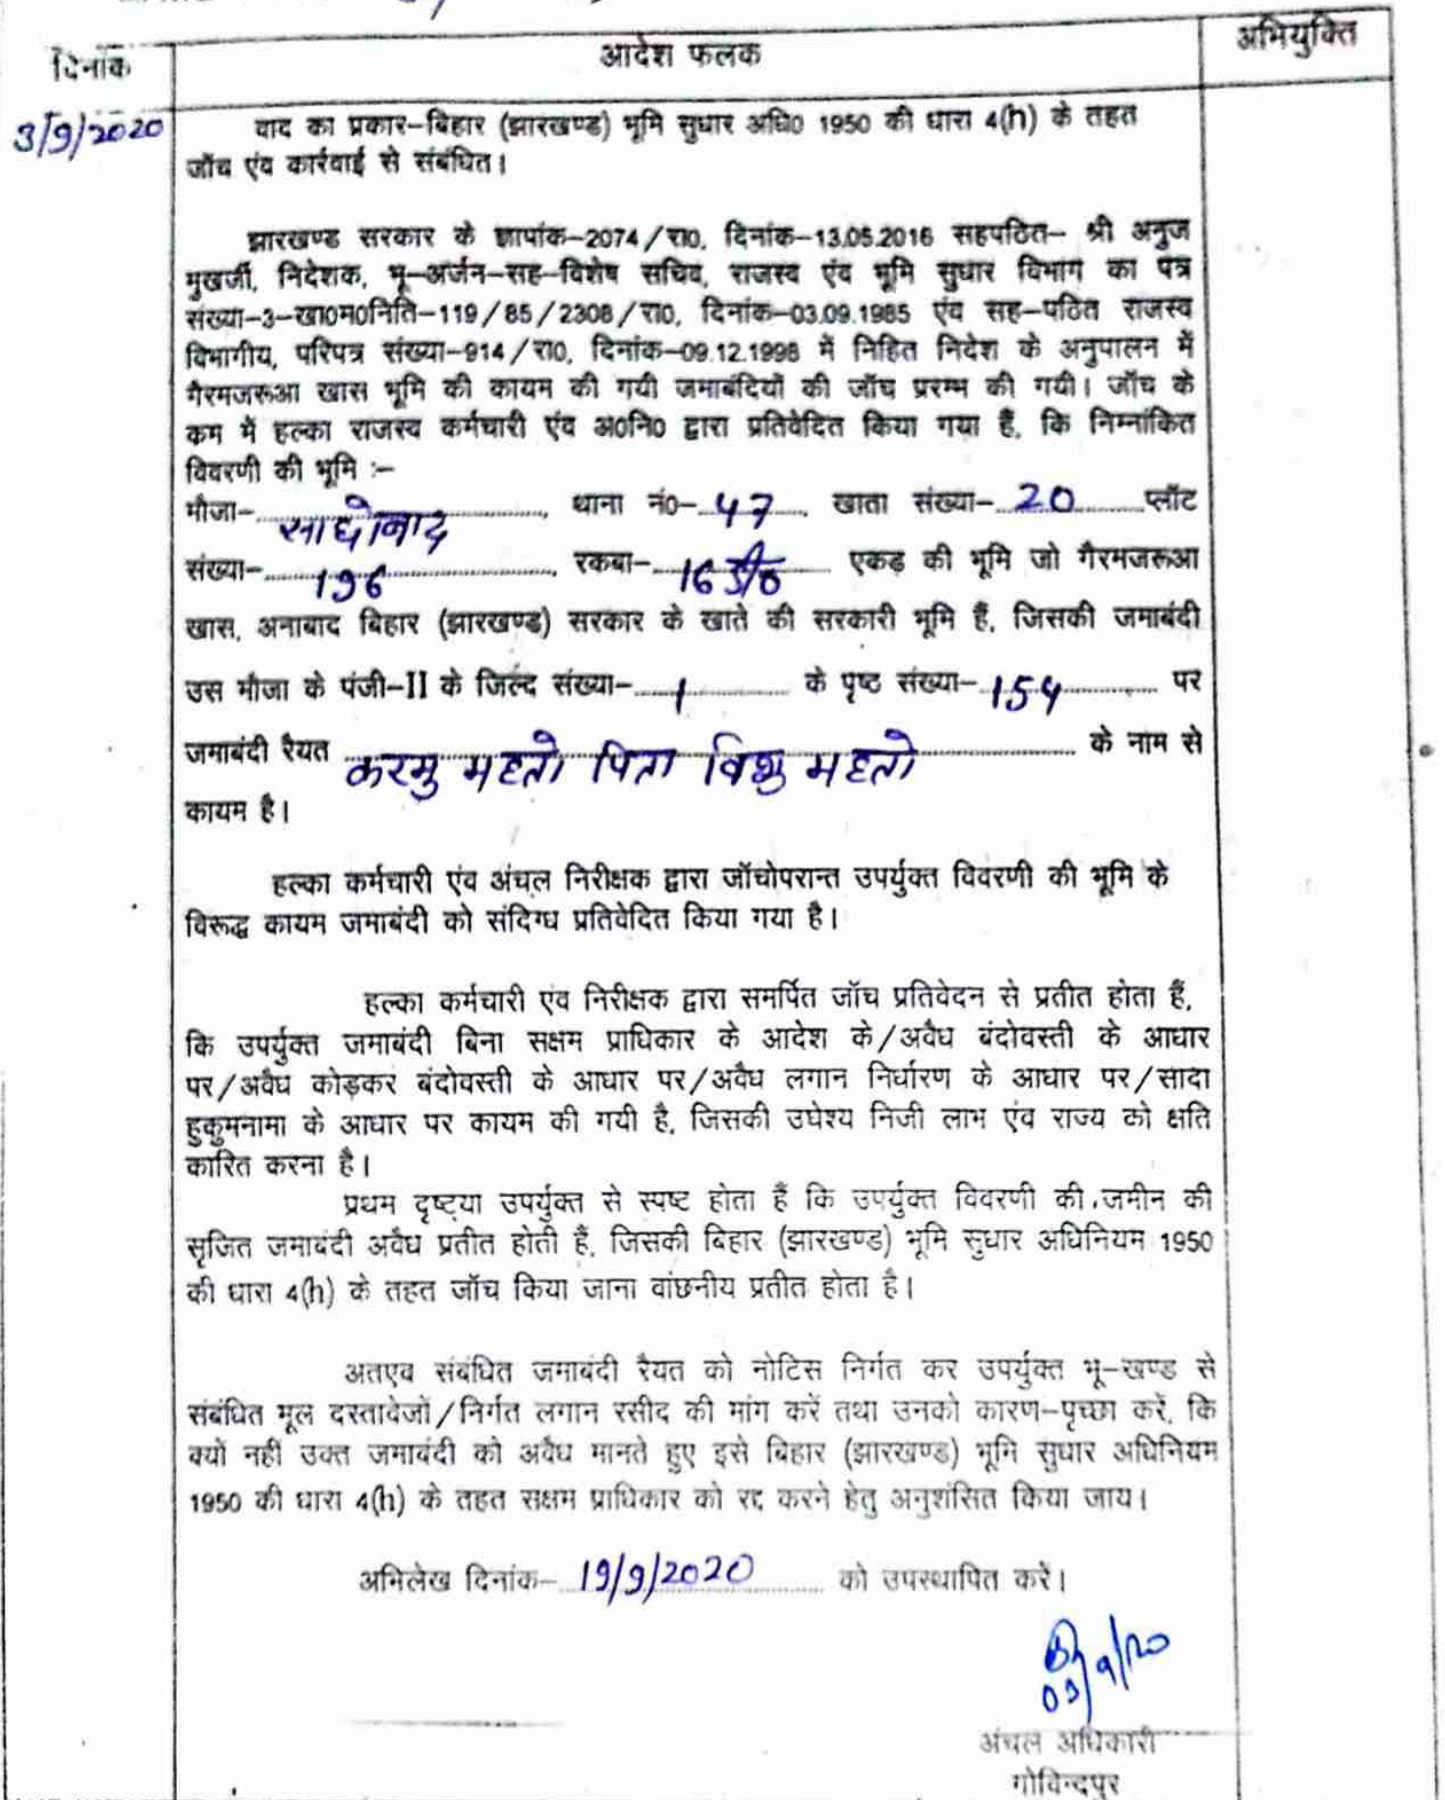 दिनांक आदेश फलक अभियुक्ति
3/9/2020 वाद का प्रकार–बिहार (झारखण्ड) भूमि सुधार अधि0 1950 की धारा 4(h) के तहत
जॉच एंव कार्रवाई से संबंधित।
झारखण्ड सरकार के ज्ञापांक–2074/रा0, दिनांक–13.05.2016 सहपठित– श्री अनुज
मुखर्जी, निदेशक, भू–अर्जन–सह–विशेष सचिव, राजस्व एंव भूमि सुधार विभाग का पत्र
संख्या–3–खा0म0निति–119/85/2308/रा0, दिनांक–03.09.1985 एंव सह–पठित राजस्व
विभागीय, परिपत्र संख्या–914/रा0, दिनांक–09.12.1998 में निहित निदेश के अनुपालन में
गैरमजरूआ खास भूमि की कायम की गयी जमाबंदियों की जॉच प्ररम्भ की गयी। जॉच के
कम में हल्का राजस्व कर्मचारी एंव अ0नि0 द्वारा प्रतिवेदित किया गया हैं, कि निम्नांकित
विवरणी की भूमि :–
मौजा– साधोबाद, थाना नं0– 47, खाता संख्या– 20 प्लॉट
संख्या– 196, रकबा– 16 डी0 एकड़ की भूमि जो गैरमजरूआ
खास, अनाबाद बिहार (झारखण्ड) सरकार के खाते की सरकारी भूमि हैं, जिसकी जमाबंदी
उस मौजा के पंजी–II के जिल्द संख्या– 1 के पृष्ठ संख्या– 154 पर
जमाबंदी रैयत करमु महतो पिता विशु महतो के नाम से
कायम है।
हल्का कर्मचारी एंव अंचल निरीक्षक द्वारा जॉचोपरान्त उपर्युक्त विवरणी की भूमि के
विरूद्ध कायम जमाबंदी को संदिग्ध प्रतिवेदित किया गया है।
हल्का कर्मचारी एंव निरीक्षक द्वारा समर्पित जॉच प्रतिवेदन से प्रतीत होता हैं,
कि उपर्युक्त जमाबंदी बिना सक्षम प्राधिकार के आदेश के/अवैध बंदोवस्ती के आधार
पर/अवैध कोड़कर बंदोवस्ती के आधार पर/अवैध लगान निर्धारण के आधार पर/सादा
हुकुमनामा के आधार पर कायम की गयी है, जिसकी उघेश्य निजी लाभ एंव राज्य को क्षति
कारित करना है।
प्रथम दृष्टया उपर्युक्त से स्पष्ट होता हैं कि उपर्युक्त विवरणी की जमीन की
सृजित जमाबंदी अवैध प्रतीत होती हैं, जिसकी बिहार (झारखण्ड) भूमि सुधार अधिनियम 1950
की धारा 4(h) के तहत जॉच किया जाना वांछनीय प्रतीत होता है।
अतएव संबंधित जमाबंदी रैयत को नोटिस निर्गत कर उपर्युक्त भू–खण्ड से
संबंधित मूल दस्तावेजों/निर्गत लगान रसीद की मांग करें तथा उनको कारण–पृच्छा करें, कि
क्यों नहीं उक्त जमाबंदी को अवैध मानते हुए इसे बिहार (झारखण्ड) भूमि सुधार अधिनियम
1950 की धारा 4(h) के तहत सक्षम प्राधिकार को रद्द करने हेतु अनुशंसित किया जाय।
अभिलेख दिनांक– 19/9/2020 को उपस्थापित करें।
03/9/20
अंचल अधिकारी
गोविन्दपुर